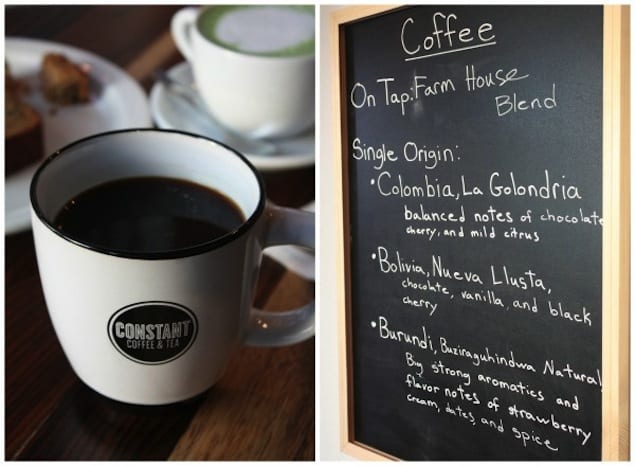 CONSTANT
COFFEE & TEA
Coffee
On Tap: Farm House
Blend
Single Origin:
• Colombia, La Golondria
balanced notes of chocolate
cherry, and mild citrus
• Bolivia, Nueva Llusta,
chocolate, vanilla, and black
cherry
• Burundi, Buziraguhindwa Natural
Big strong aromatics and
flavor notes of strawberry
cream, dates, and spice